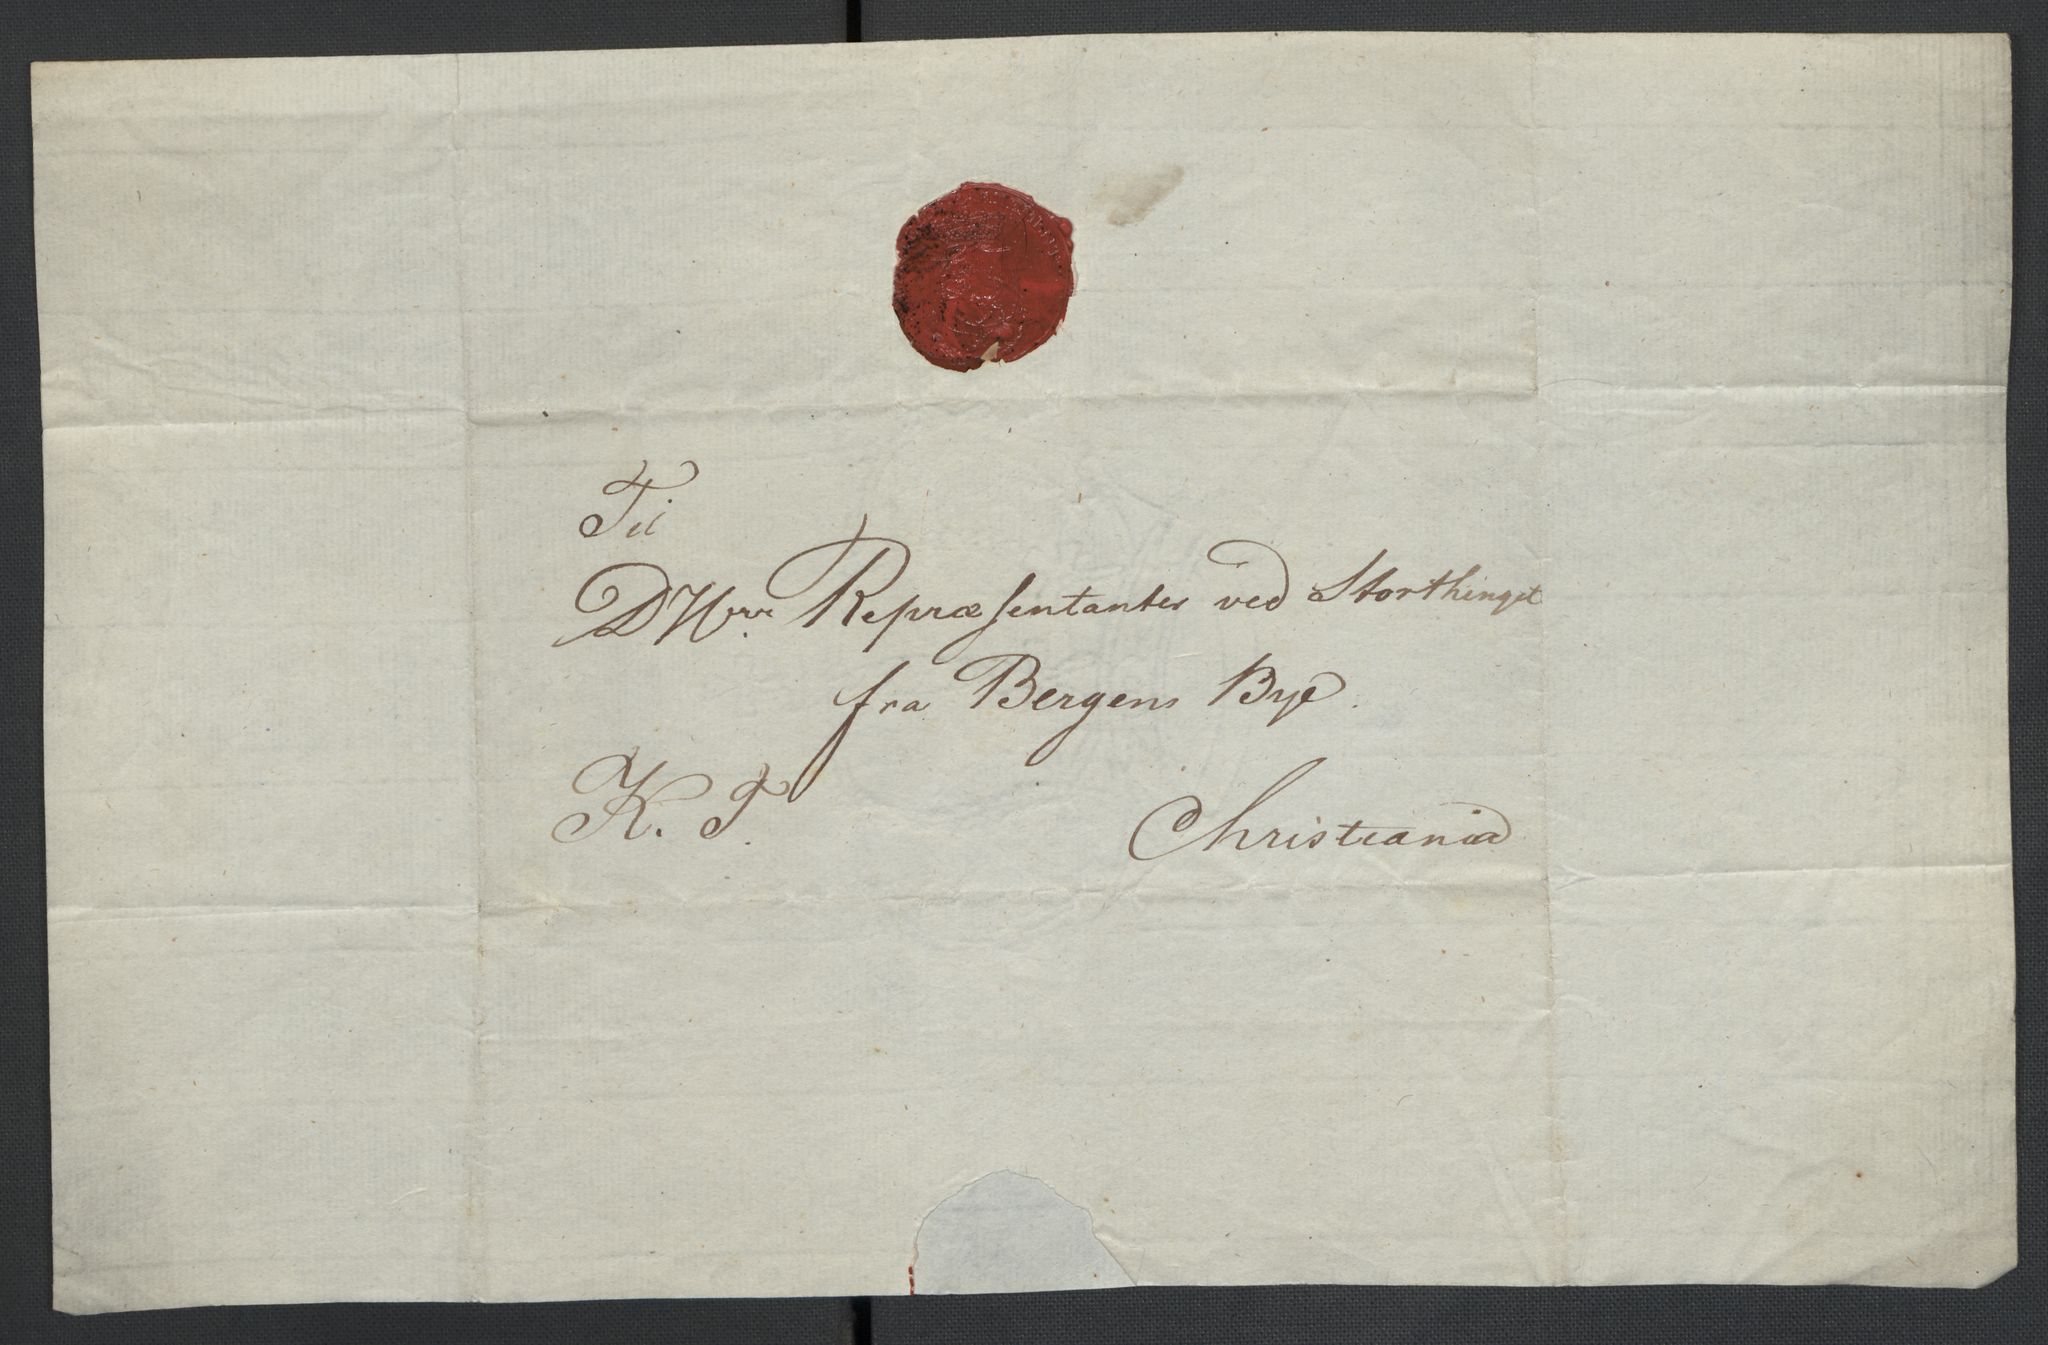 Til
D Hrr. Repræsentanter ved Storthinget
fra Bergens Bye.
K. T. Christiania